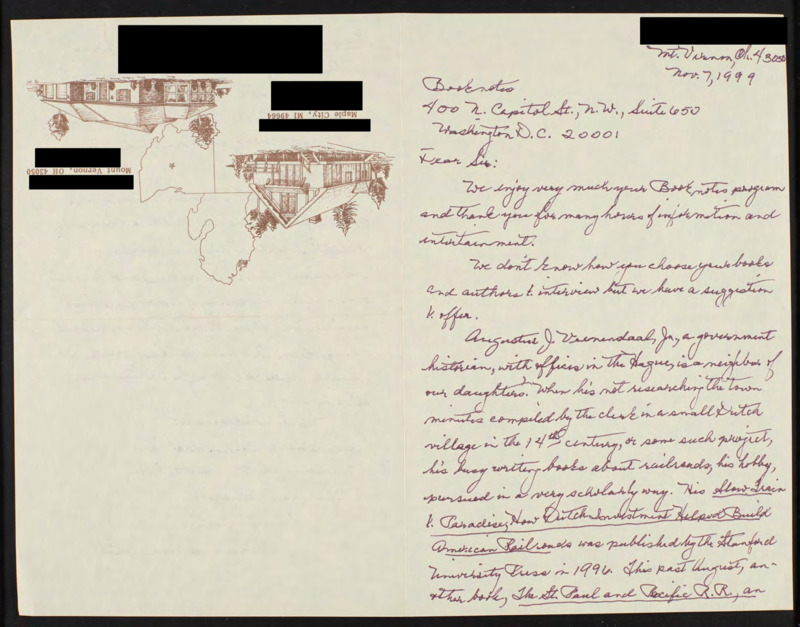 Maple City, MI 49664
Mount Vernon, OH 43050
Mt. Vernon, Oh. 43050
Nov. 7, 1999
Booknotes
400 N. Capitol St., N.W., Suite 650
Washington D.C. 20001
Dear Sir:
We enjoy very much your Booknotes program
and thank you for many hours of information and
intertainment.
We don't know how you choose your books
and authors to interview but we have a suggestion
to offer.
Augustus J. Veenendaal, Jr., a government
historian, with offices in the Hague, is a neighbor of
our daughters. When he's not researching the town
minutes compiled by the clerk in a small Dutch
village in the 14th century, or some such project,
he's busy writing books about railroads, his hobby,
pursued in a very scholarly way. His Slow Train
to Paradise, How Dutch Investment Helped Build
American Railroads was published by the Stanford
University Press in 1996. This past August, an-
other book, The St. Paul and Pacific R.R., an